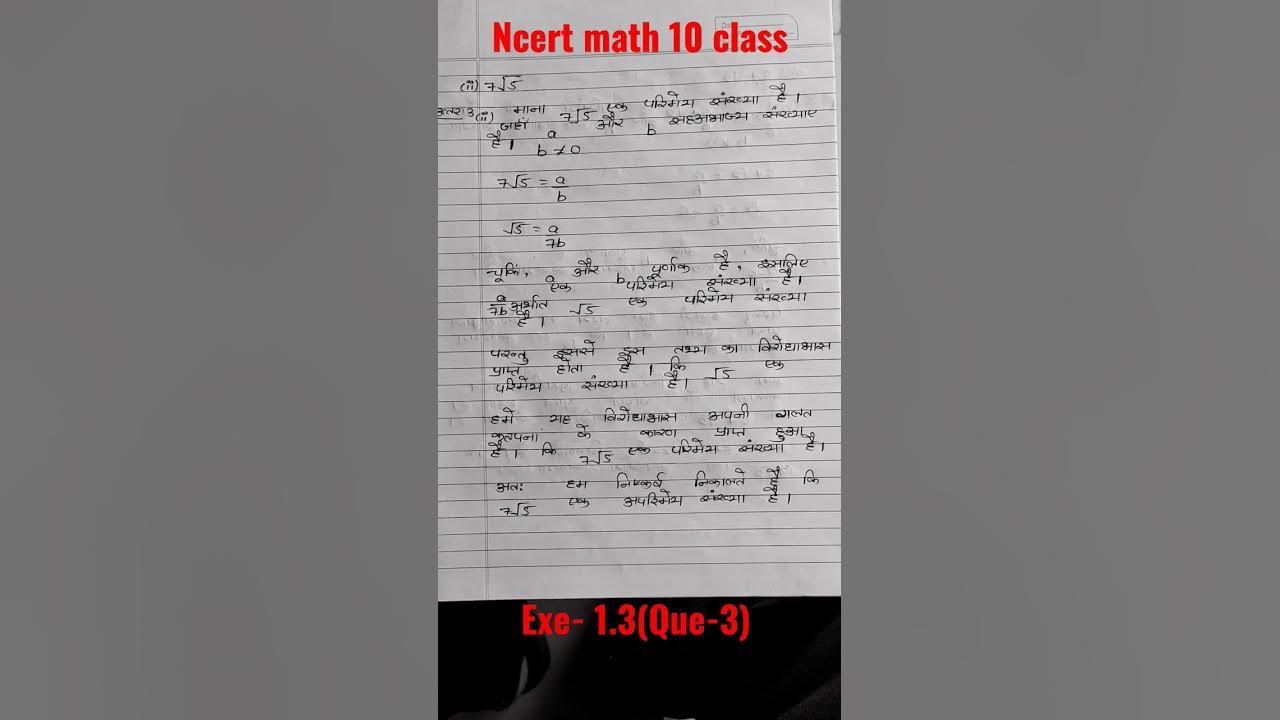 Ncert math 10 class
(ii) 7√5
उत्तर3(ii) माना 7√5 एक परिमेय संख्या है।
जहाँ a और b सहअभाज्य संख्याए
है। b ≠ 0
7√5 = a/b
√5 = a/7b
चूकिं, a और b पूर्णांक है, इसलिए
a/7b एक परिमेय संख्या है।
अर्थात √5 एक परिमेय संख्या
है।
परन्तु इससे इस तथ्य का विरोधाभास
प्राप्त होता है। कि √5 एक
परिमेय संख्या है।
हमें यह विरोधाभास अपनी गलत
कल्पना के कारण प्राप्त हुआ
है। कि 7√5 एक परिमेय संख्या है।
अतः हम निष्कर्ष निकालते हैं कि
7√5 एक अपरिमेय संख्या है।
Exe- 1.3(Que-3)